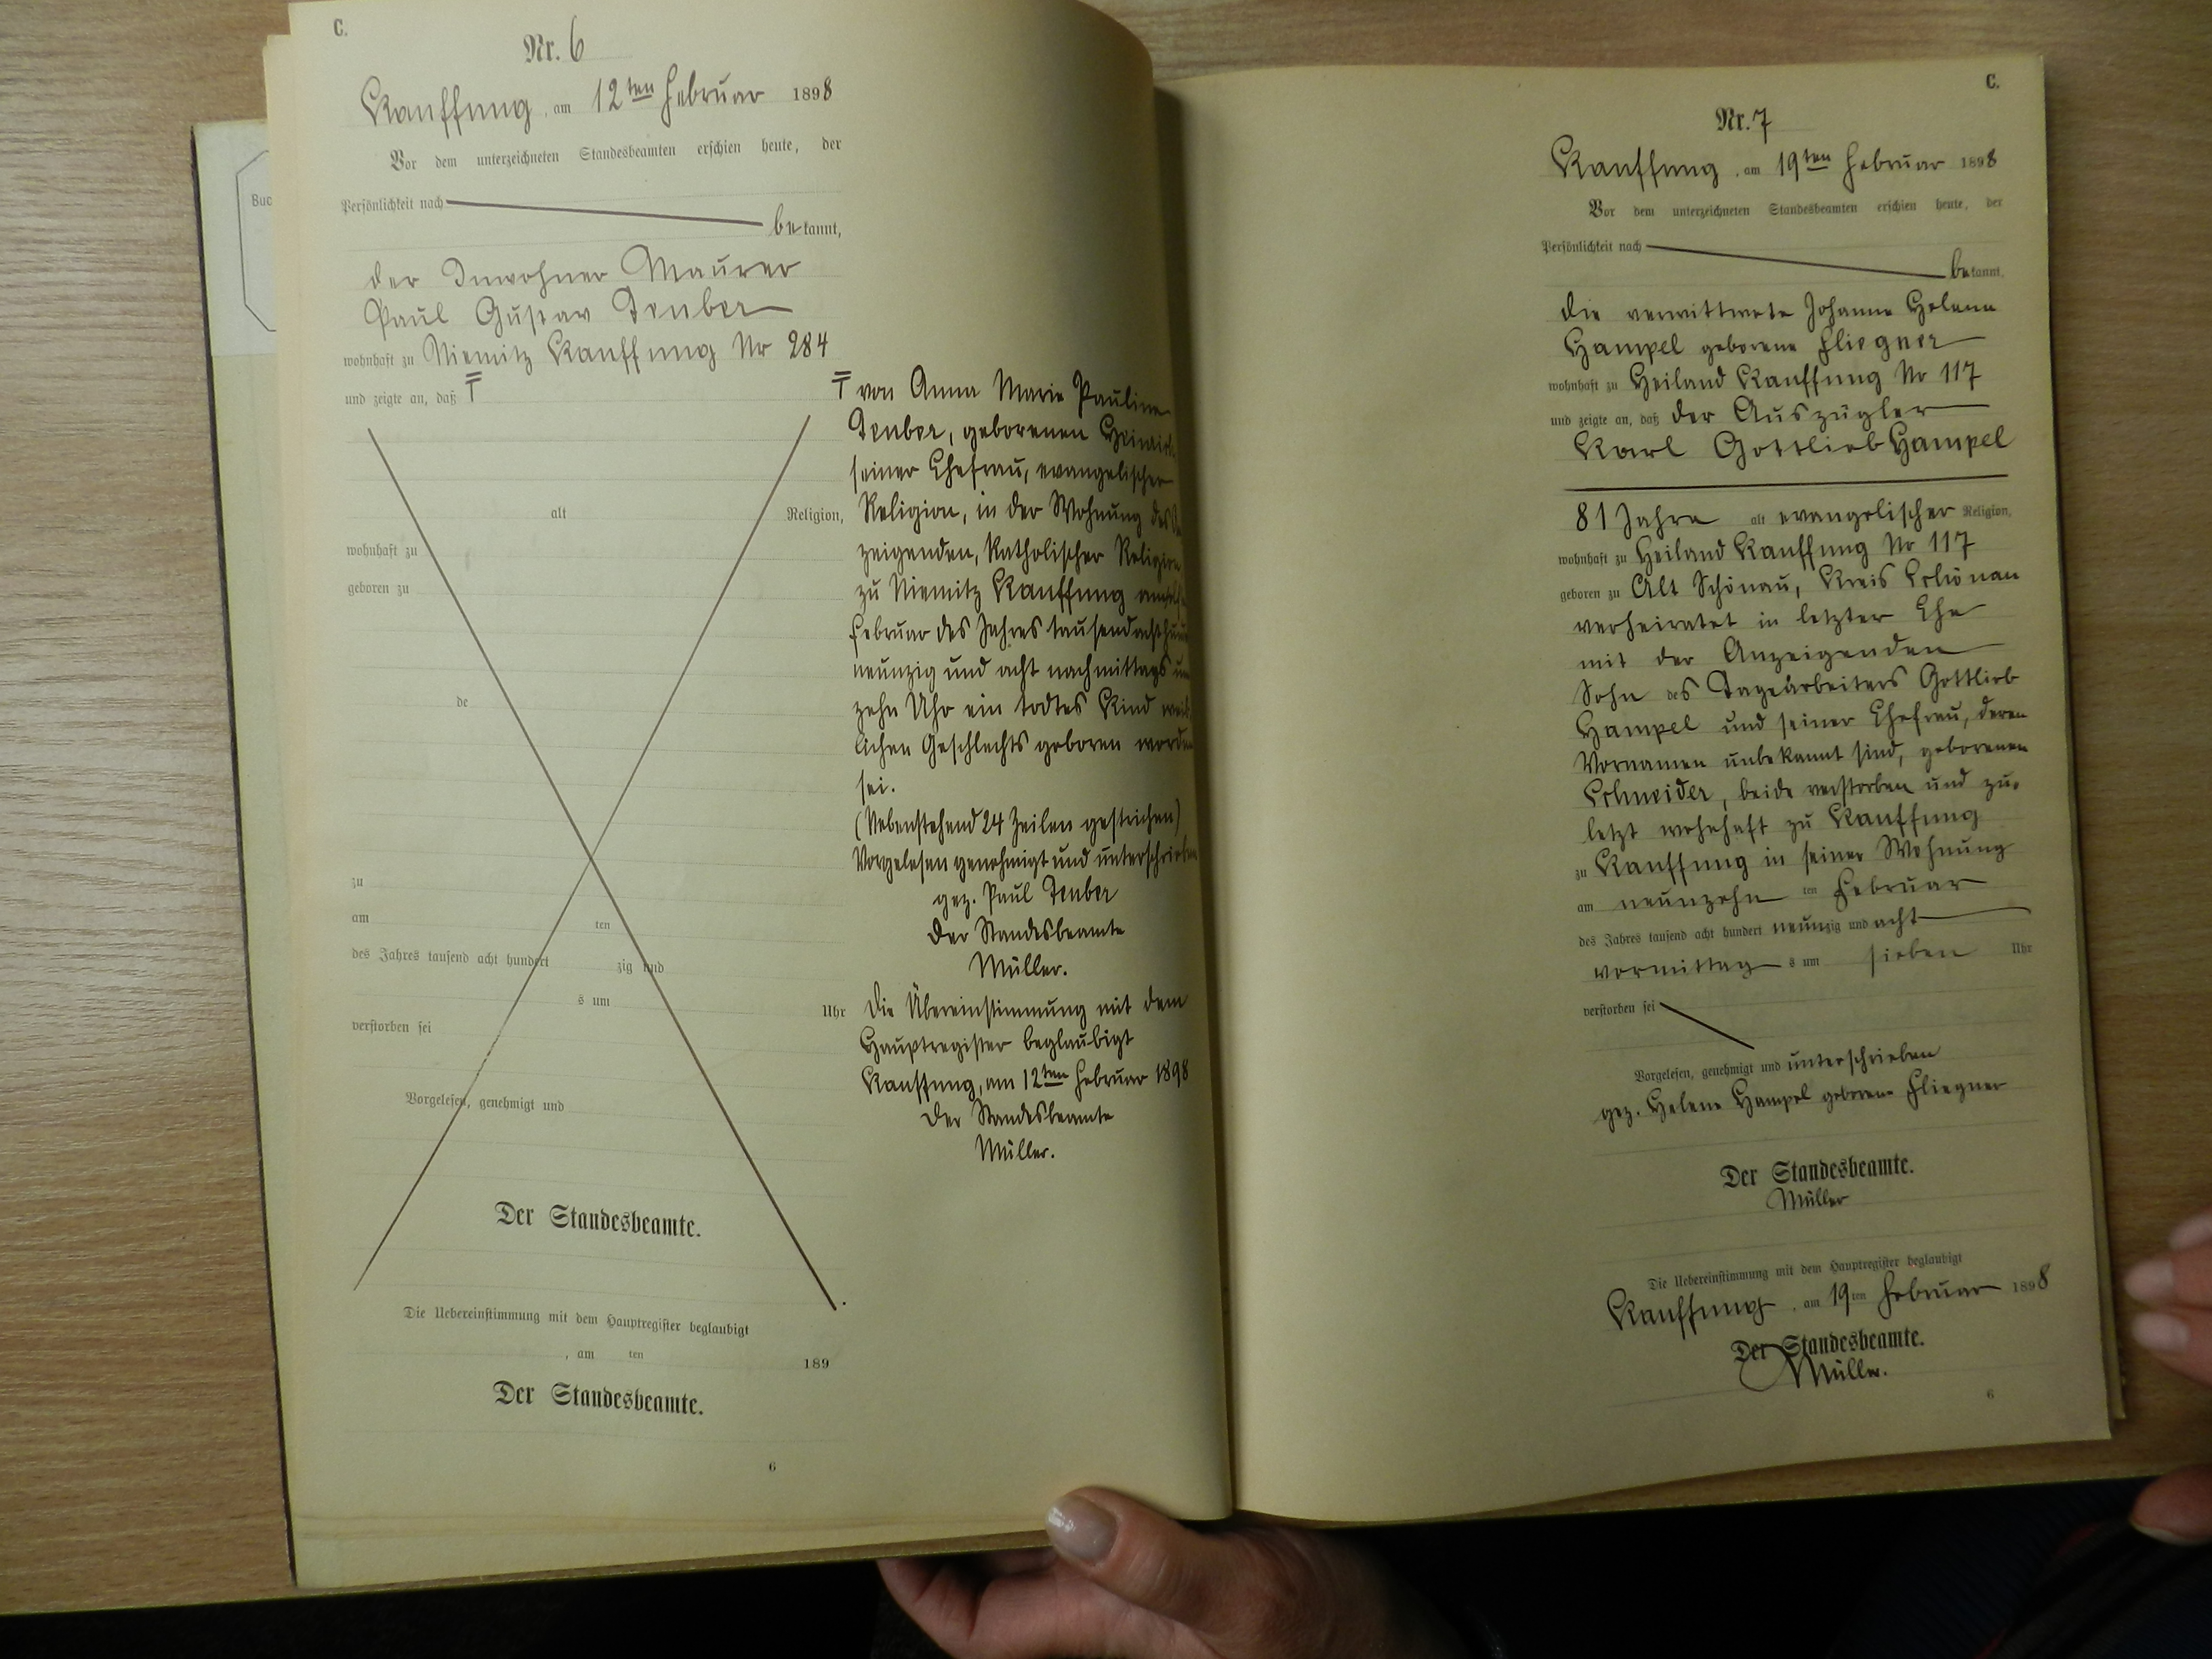 C.
Nr. 6
Kauffung, am 12ten Februar 1898
Vor dem unterzeichneten Standesbeamten erschien heute, der
Persönlichkeit nach
bekannt,
der Inwohner Maurer
Paul Gustav Teuber
wohnhaft zu Niemitz Kauffung Nr 284
und zeigte an, daß
alt Religion,
wohnhaft zu
geboren zu
de
zu
am ten
des Jahres tausend acht hundert zig und
s um Uhr
verstorben sei
Vorgelesen, genehmigt und
Der Standesbeamte.
Die Uebereinstimmung mit dem Hauptregister beglaubigt
, am ten 189
Der Standesbeamte.
6
von Anna Marie Pauline
Teuber, geborenen
seiner Ehefrau, evangelischer
Religion, in der Wohnung
zeigenden, katholischer Religion
zu Niemitz Kauffung
Februar des Jahres
neunzig und acht nachmittags
zehn Uhr ein todtes Kind weib
lichen Geschlechts geboren worden
sei.
(Nebenstehend 24 Zeilen gestrichen)
Vorgelesen genehmigt und unterschrieben
gez. Paul Teuber
Der Standesbeamte
Müller.
Die Übereinstimmung mit dem
Hauptregister beglaubigt
Kauffung, am 12ten Februar 1898
Der Standesbeamte
Müller.
C.
Nr. 7
Kauffung, am 19ten Februar 1898
Vor dem unterzeichneten Standesbeamten erschien heute, der
Persönlichkeit nach
bekannt,
die verwittwete Johanne Helene
Hampel geborene Fliegner
wohnhaft zu Heiland Kauffung Nr 117
und zeigte an, daß der Auszügler
Karl Gottlieb Hampel
81 Jahre alt evangelischer Religion,
wohnhaft zu Heiland Kauffung Nr 117
geboren zu Alt Schönau, Kreis Schönau
verheiratet in letzter Ehe
mit der Anzeigenden
Sohn des Tagearbeiters Gottlieb
Hampel und seiner Ehefrau, deren
Vornamen unbekannt sind, geborenen
Schneider, beide verstorben und zu-
letzt wohnhaft zu Kauffung
zu Kauffung in seiner Wohnung
am neunzehn ten Februar
des Jahres tausend acht hundert neunzig und acht
vormittag s um sieben Uhr
verstorben sei
Vorgelesen, genehmigt und unterschrieben
gez. Helene Hampel geborene Fliegner
Der Standesbeamte.
Müller
Die Uebereinstimmung mit dem Hauptregister beglaubigt
Kauffung, am 19ten Februar 1898
Der Standesbeamte.
Müller.
6